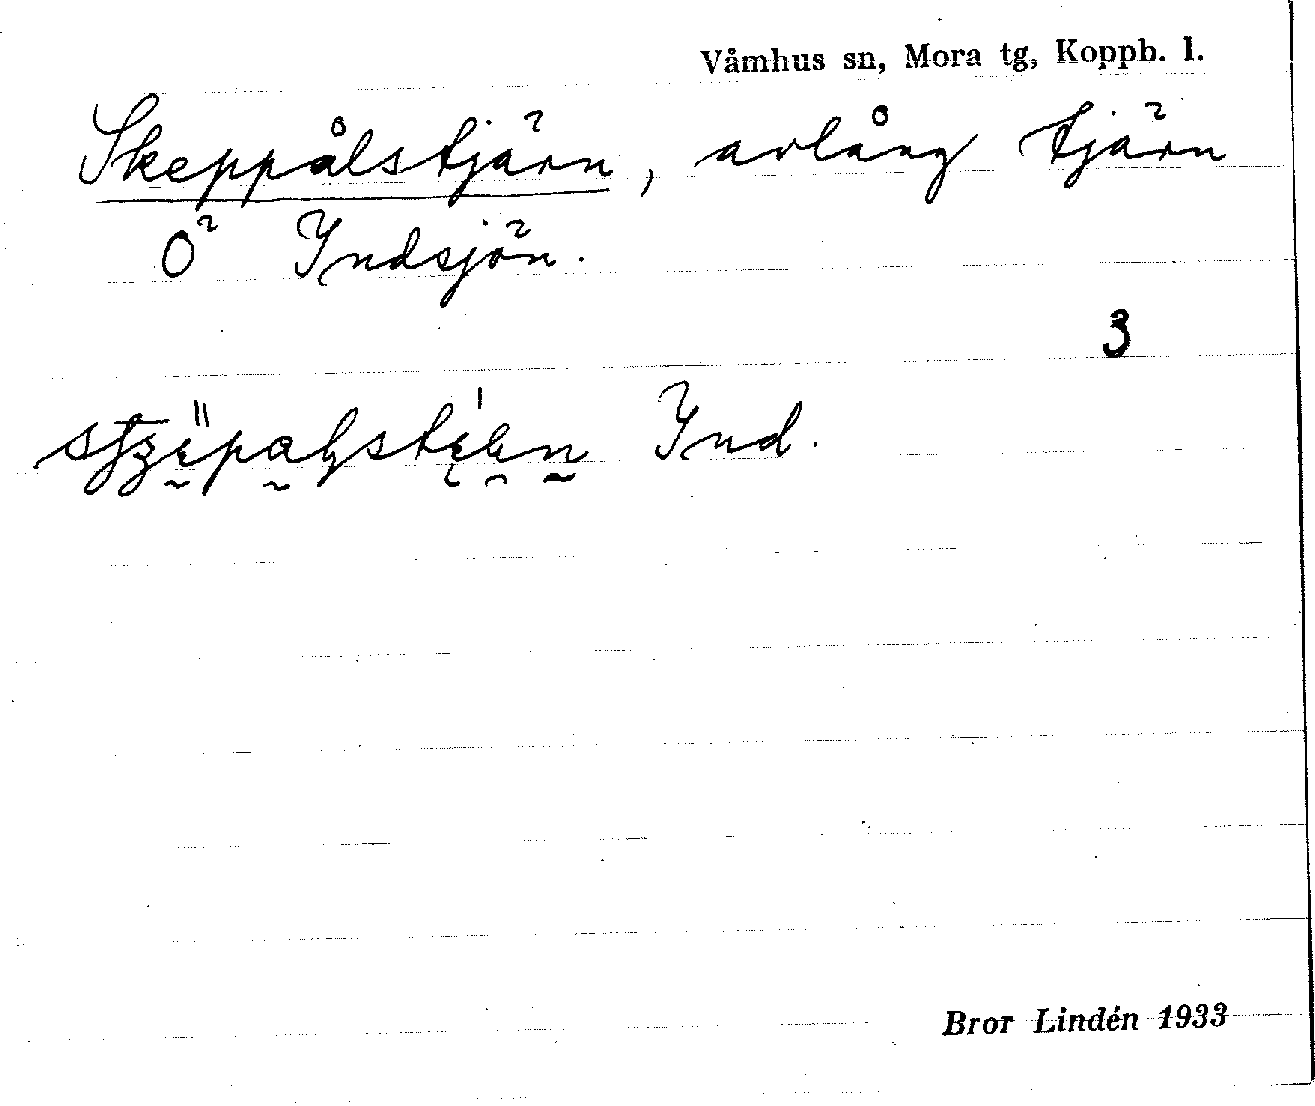 Våmhus sn, Mora tg, Koppb. l.
Skeppålstjärn, avlång tjärn
Ö Indsjön.
3
Ind.
Bror Lindén 1933